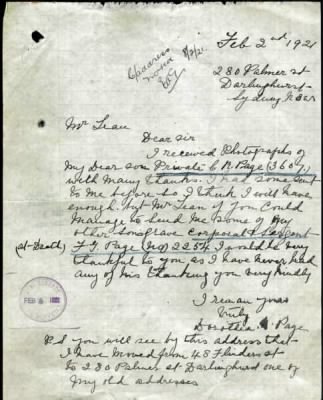 Feb 2nd 1921
280 Palmer st
Darlinghurst
Sydney NSW
Address
noted
8/2/21.
Mr Lean
Dear sir
I received Photographs of
My Dear son Private C R Page (3607)
with Many thanks I had some sent
to Me before so I think I will have
enough. but Mr Lean if You Could
Manage to Send Me some of My
other Sons grave Corporal & Sargent
(at Death)
F G Page (No) 2254 I would be very
thankful to you as I have never had
any of his thanking you very kindly
I remain yours
truly
Dorothea Page
P.S you will see by this address that
I have Moved from 48 Flinders st
to 280 Palmer st Darlinghurst one of
My old addresses
FEB 1921